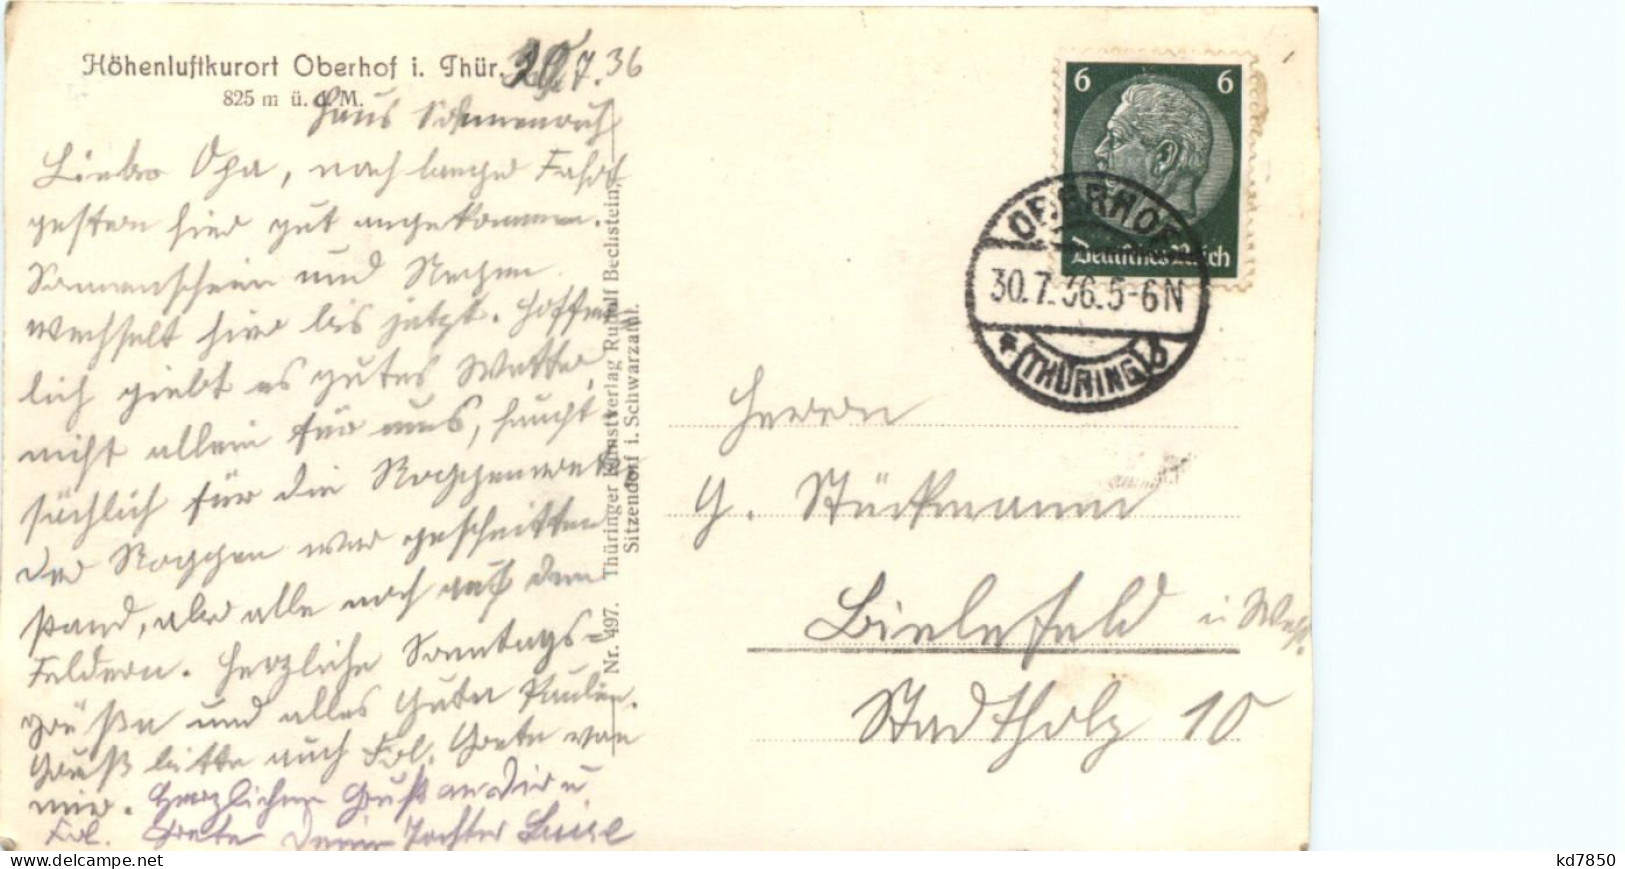 Höhenluftkurort Oberhof i. Thür.
825 m ü. d. M.
30.7.36
Haus
Lieber Opa, nach langer Fahrt
gestern hier gut angekommen.
Sonnenschein und Regen
wechselt hier bis jetzt. Hoffent
lich giebt es gutes Wetter,
nicht allein für uns, haupt
sächlich für die
Der Roggen war geschnitten
stand, aber alle noch auf den
Feldern. Herzliche Sonntags-
grüße und alles Gute
Gruß bitte auch Frl. Grete von
mir. Herzlichen Gruß an Dir u
Frl. Grete Deine Tochter Luise
Nr. 497. Thüringer Kunstverlag Rudolf Bechstein,
Sitzendorf i. Schwarzatal.
6 6
Deutsches Reich
OBERHOF
30.7.36.5-6N
* (THÜRING) b
Herrn
G. Stückmann
Bielefeld i Westf.
Stadtholz 10
kd7850